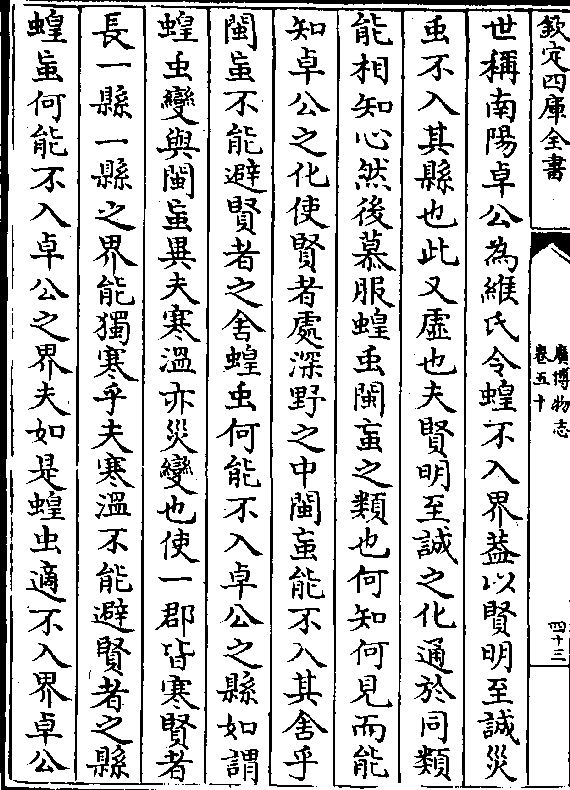 欽定四庫全書
廣博物志
卷五十
四十三
世稱南陽卓公為緱氏令蝗不入界葢以賢明至誠災
虫不入其縣也此又虛也夫賢明至誠之化通於同類
能相知心然後慕服蝗虫閩䖟之類也何知何見而能
知卓公之化使賢者處深野之中閩䖟能不入其舍乎
閩䖟不能避賢者之舍蝗虫何能不入卓公之縣如謂
蝗虫變與閩䖟異夫寒溫亦災變也使一郡皆寒賢者
長一縣一縣之界能獨寒乎夫寒溫不能避賢者之縣
蝗䖟何能不入卓公之界夫如是蝗虫適不入界卓公